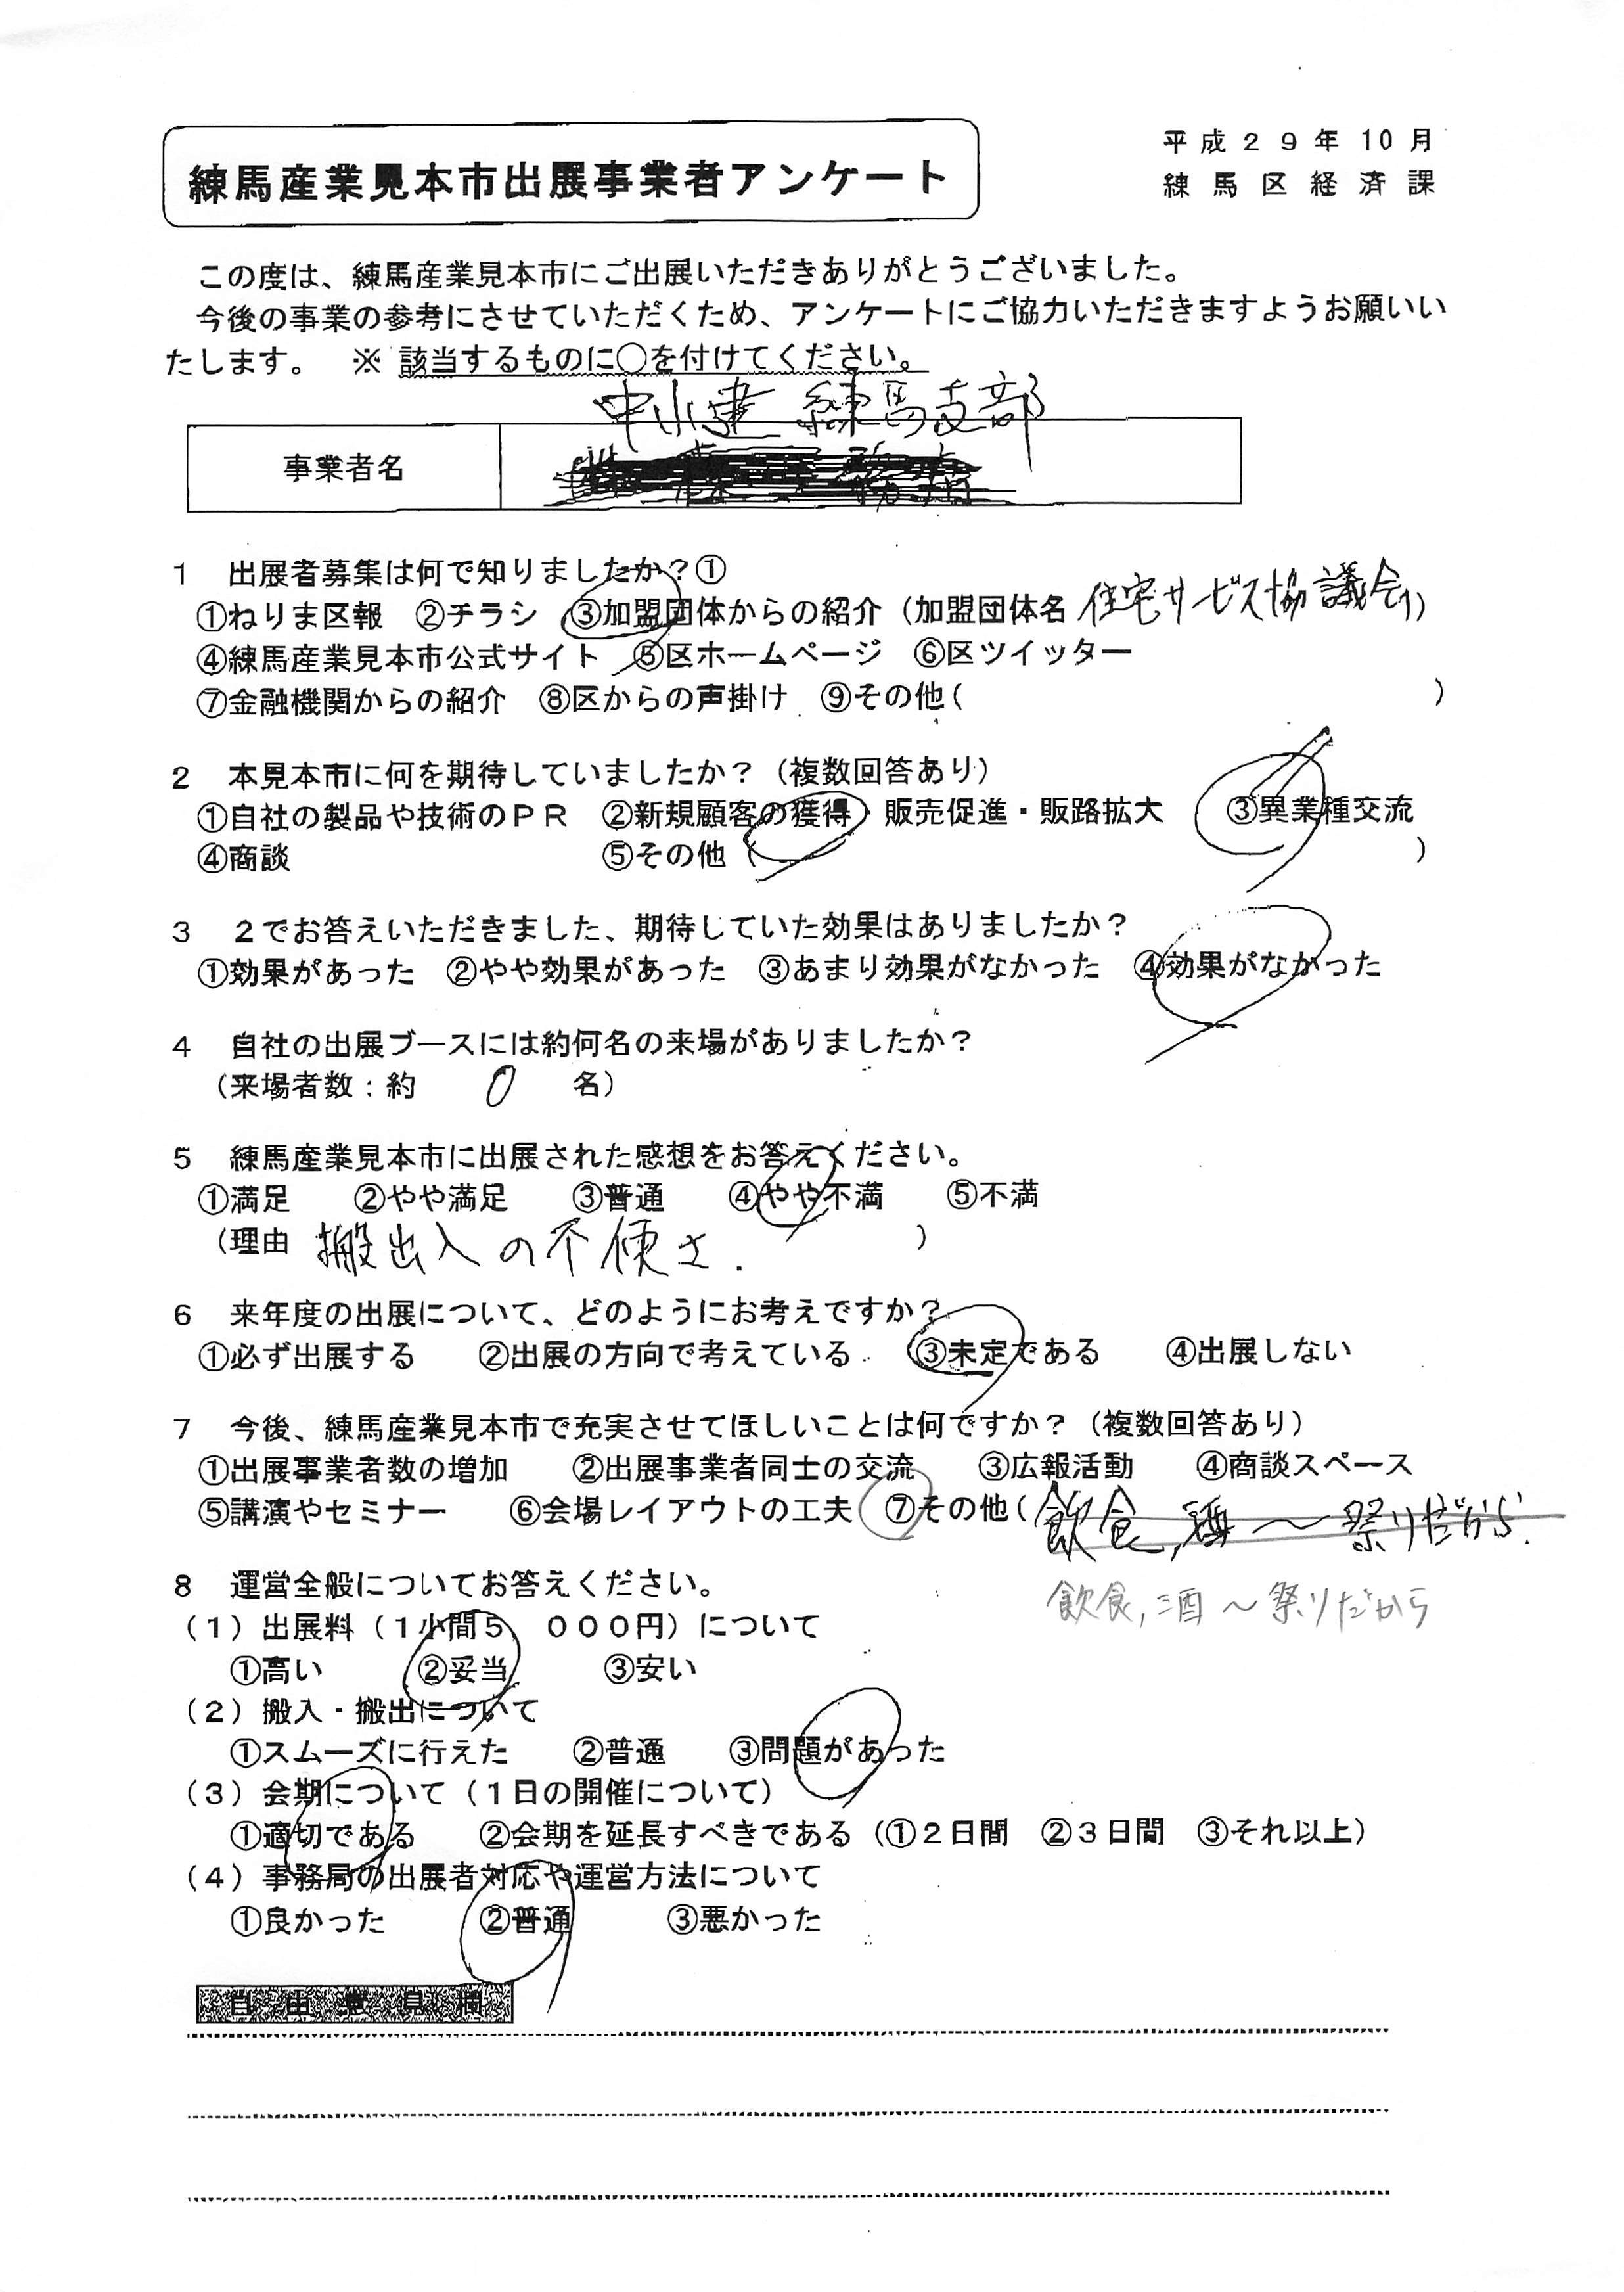 練馬産業見本市出展事業者アンケート
平成２９年10月
練馬区経済課
この度は、練馬産業見本市にご出展いただきありがとうございました。
今後の事業の参考にさせていただくため、アンケートにご協力いただきますようお願いい
たします。　※ 該当するものに○を付けてください。
中小建 練馬支部
事業者名
1　出展者募集は何で知りましたか？①
①ねりま区報　②チラシ　③加盟団体からの紹介（加盟団体名 住宅サービス協議会）
④練馬産業見本市公式サイト　⑤区ホームページ　⑥区ツイッター
⑦金融機関からの紹介　⑧区からの声掛け　⑨その他（　　　）
2　本見本市に何を期待していましたか？（複数回答あり）
①自社の製品や技術のＰＲ　②新規顧客の獲得・販売促進・販路拡大　③異業種交流
④商談　⑤その他（　　　）
3　２でお答えいただきました、期待していた効果はありましたか？
①効果があった　②やや効果があった　③あまり効果がなかった　④効果がなかった
4　自社の出展ブースには約何名の来場がありましたか？
（来場者数：約　0　名）
5　練馬産業見本市に出展された感想をお答えください。
①満足　②やや満足　③普通　④やや不満　⑤不満
（理由　搬出入の不便さ.　）
6　来年度の出展について、どのようにお考えですか？
①必ず出展する　②出展の方向で考えている　③未定である　④出展しない
7　今後、練馬産業見本市で充実させてほしいことは何ですか？（複数回答あり）
①出展事業者数の増加　②出展事業者同士の交流　③広報活動　④商談スペース
⑤講演やセミナー　⑥会場レイアウトの工夫　⑦その他（飲食,酒～祭りだから.
飲食,酒～祭りだから
8　運営全般についてお答えください。
（1）出展料（１小間５　０００円）について
①高い　②妥当　③安い
（2）搬入・搬出について
①スムーズに行えた　②普通　③問題があった
（3）会期について（１日の開催について）
①適切である　②会期を延長すべきである（①２日間　②３日間　③それ以上）
（4）事務局の出展者対応や運営方法について
①良かった　②普通　③悪かった
自由意見欄